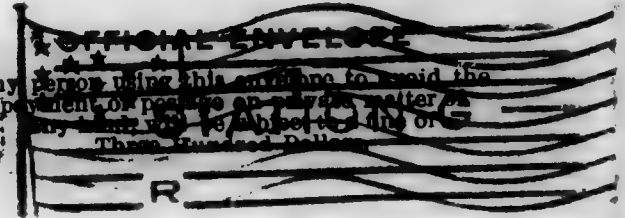 OFFICIAL ENVELOPE
ny person using this envelope to avoid the
payment of postage on private matter of
any kind, will be subject to a fine of
Three Hundred Dollars
R